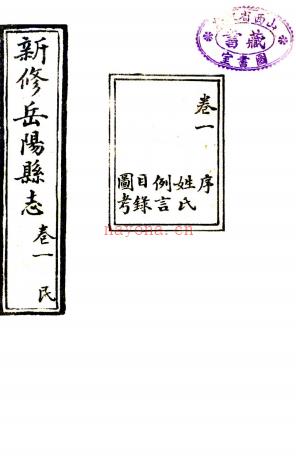 新修岳陽縣志 卷一 民
卷一
序
姓氏
例言
目錄
圖考
nayona.cn
藏書
圖書室